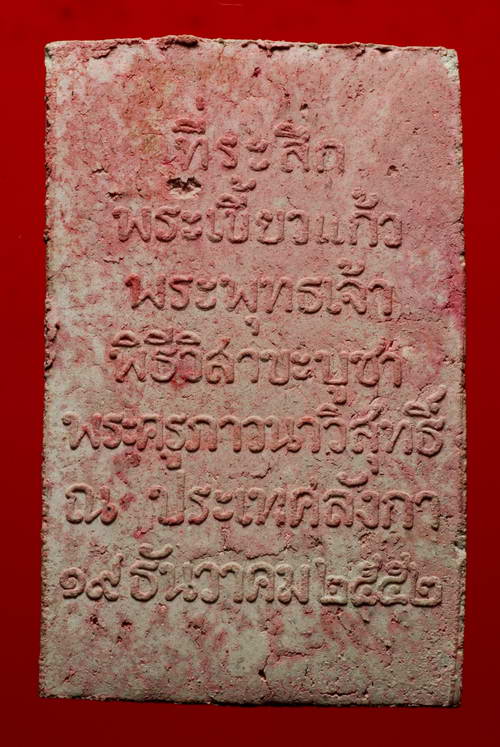 ที่ระลึก
พระเขี้ยวแก้ว
พระพุทธเจ้า
พิธีวิสาขะบูชา
พระครูภาวนาวิสุทธิ์
ณ ประเทศลังกา
๑๙ ธันวาคม ๒๕๕๒